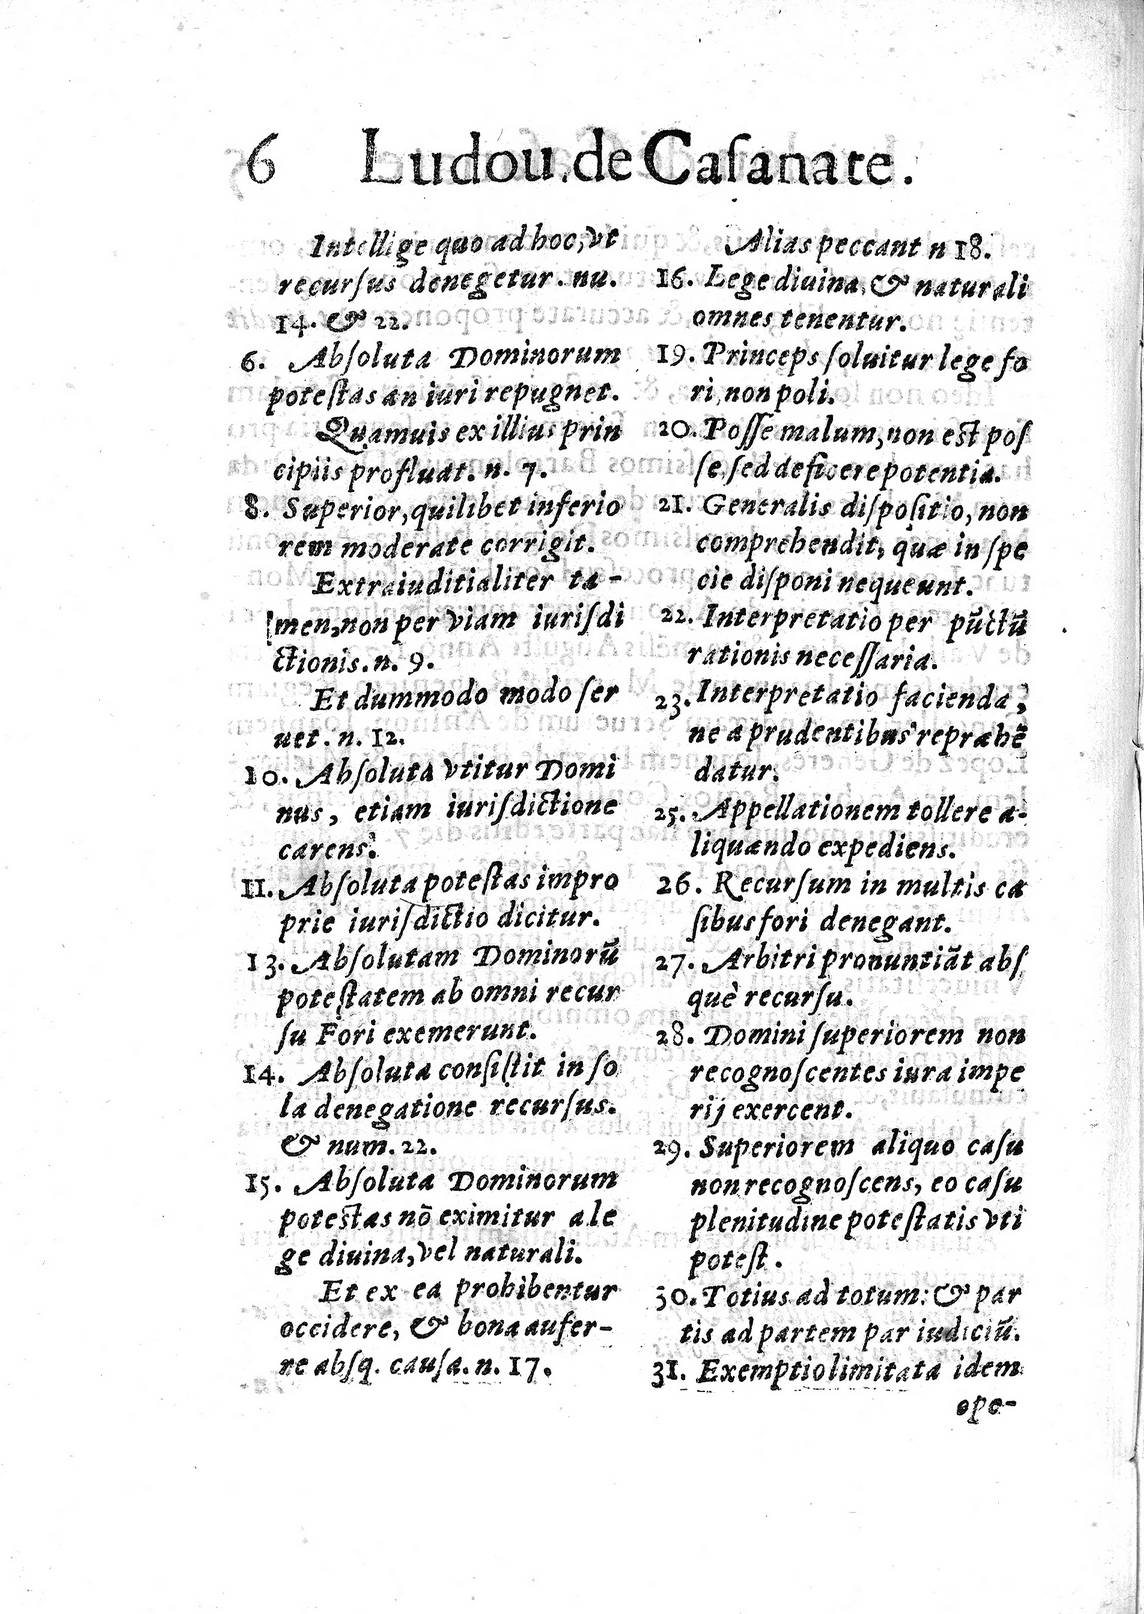 6 Ludou. de Caſanate.
Intellige quo ad hoc, vt
recurſus denegetur. nu.
14. & 22.
6. Abſoluta Dominorum
poteſtas an iuri repugnet.
Quamuis ex illius prin
cipiis profluat. n. 7.
8. Superior, quilibet inferio
rem moderate corrigit.
Extraiuditialiter ta-
men, non per viam iuriſdi
ctionis. n. 9.
Et dummodo modo ſer
uet. n. 12.
10. Abſoluta vtitur Domi
nus, etiam iuriſdictione
carens.
11. Abſoluta poteſtas impro
prie iuriſdictio dicitur.
13. Abſolutam Dominorū
poteſtatem ab omni recur
ſu Fori exemerunt.
14. Abſoluta conſiſtit in ſo
la denegatione recurſus.
& num. 22.
15. Abſoluta Dominorum
poteſtas nō eximitur a le
ge diuina, vel naturali.
Et ex ea prohibentur
occidere, & bona aufer-
re abſq. cauſa. n. 17.
Alias peccant n 18.
16. Lege diuina, & naturali
omnes tenentur.
19. Princeps ſoluitur lege fo
ri, non poli.
20. Poſſe malum, non eſt poſ
ſe, ſed deficere potentia.
21. Generalis diſpoſitio, non
comprehendit, quæ in ſpe
cie diſponi nequeunt.
22. Interpretatio per pūctū
rationis neceſſaria.
23. Interpretatio facienda,
ne a prudentibus repræhē
datur.
25. Appellationem tollere a-
liquando expediens.
26. Recurſum in multis ca
ſibus fori denegant.
27. Arbitri pronuntiāt abſ
què recurſu.
28. Domini ſuperiorem non
recognoſcentes iura impe
rij exercent.
29. Superiorem aliquo caſu
non recognoſcens, eo caſu
plenitudine poteſtatis vti
poteſt.
30. Totius ad totum: & par
tis ad partem par iudiciū.
31. Exemptio limitata idem
ope-